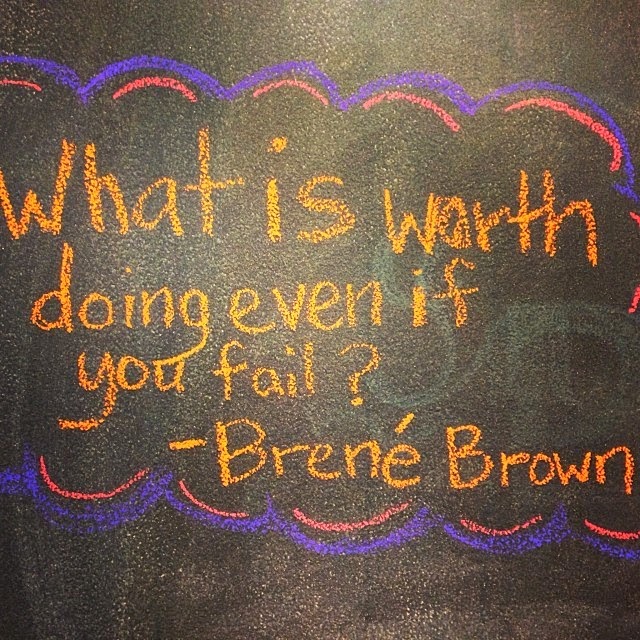 What is worth
doing even if
you fail?
-Brené Brown